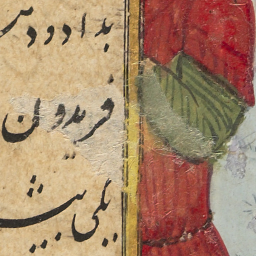 بداد و دهش
فریدون
یکی بیش